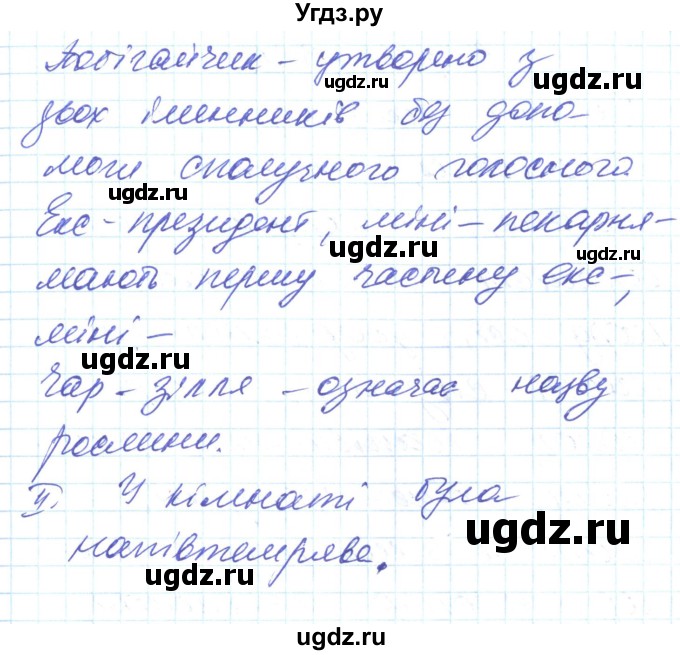 Угдз.ру
Побігайчик - утворено з
двох іменників без допо-
моги сполучного голосного
Екс-президент, міні-пекарня-
мають першу частину екс-,
міні-
Чар-зілля - означає назву
рослини.
II. У кімнаті була
напівтемрява.
ugdz.ru
ugdz.ru
ugdz.ru
ugdz.ru
ugdz.ru
ugdz.ru
ugdz.ru
ugdz.ru
ugdz.ru
ugdz.ru